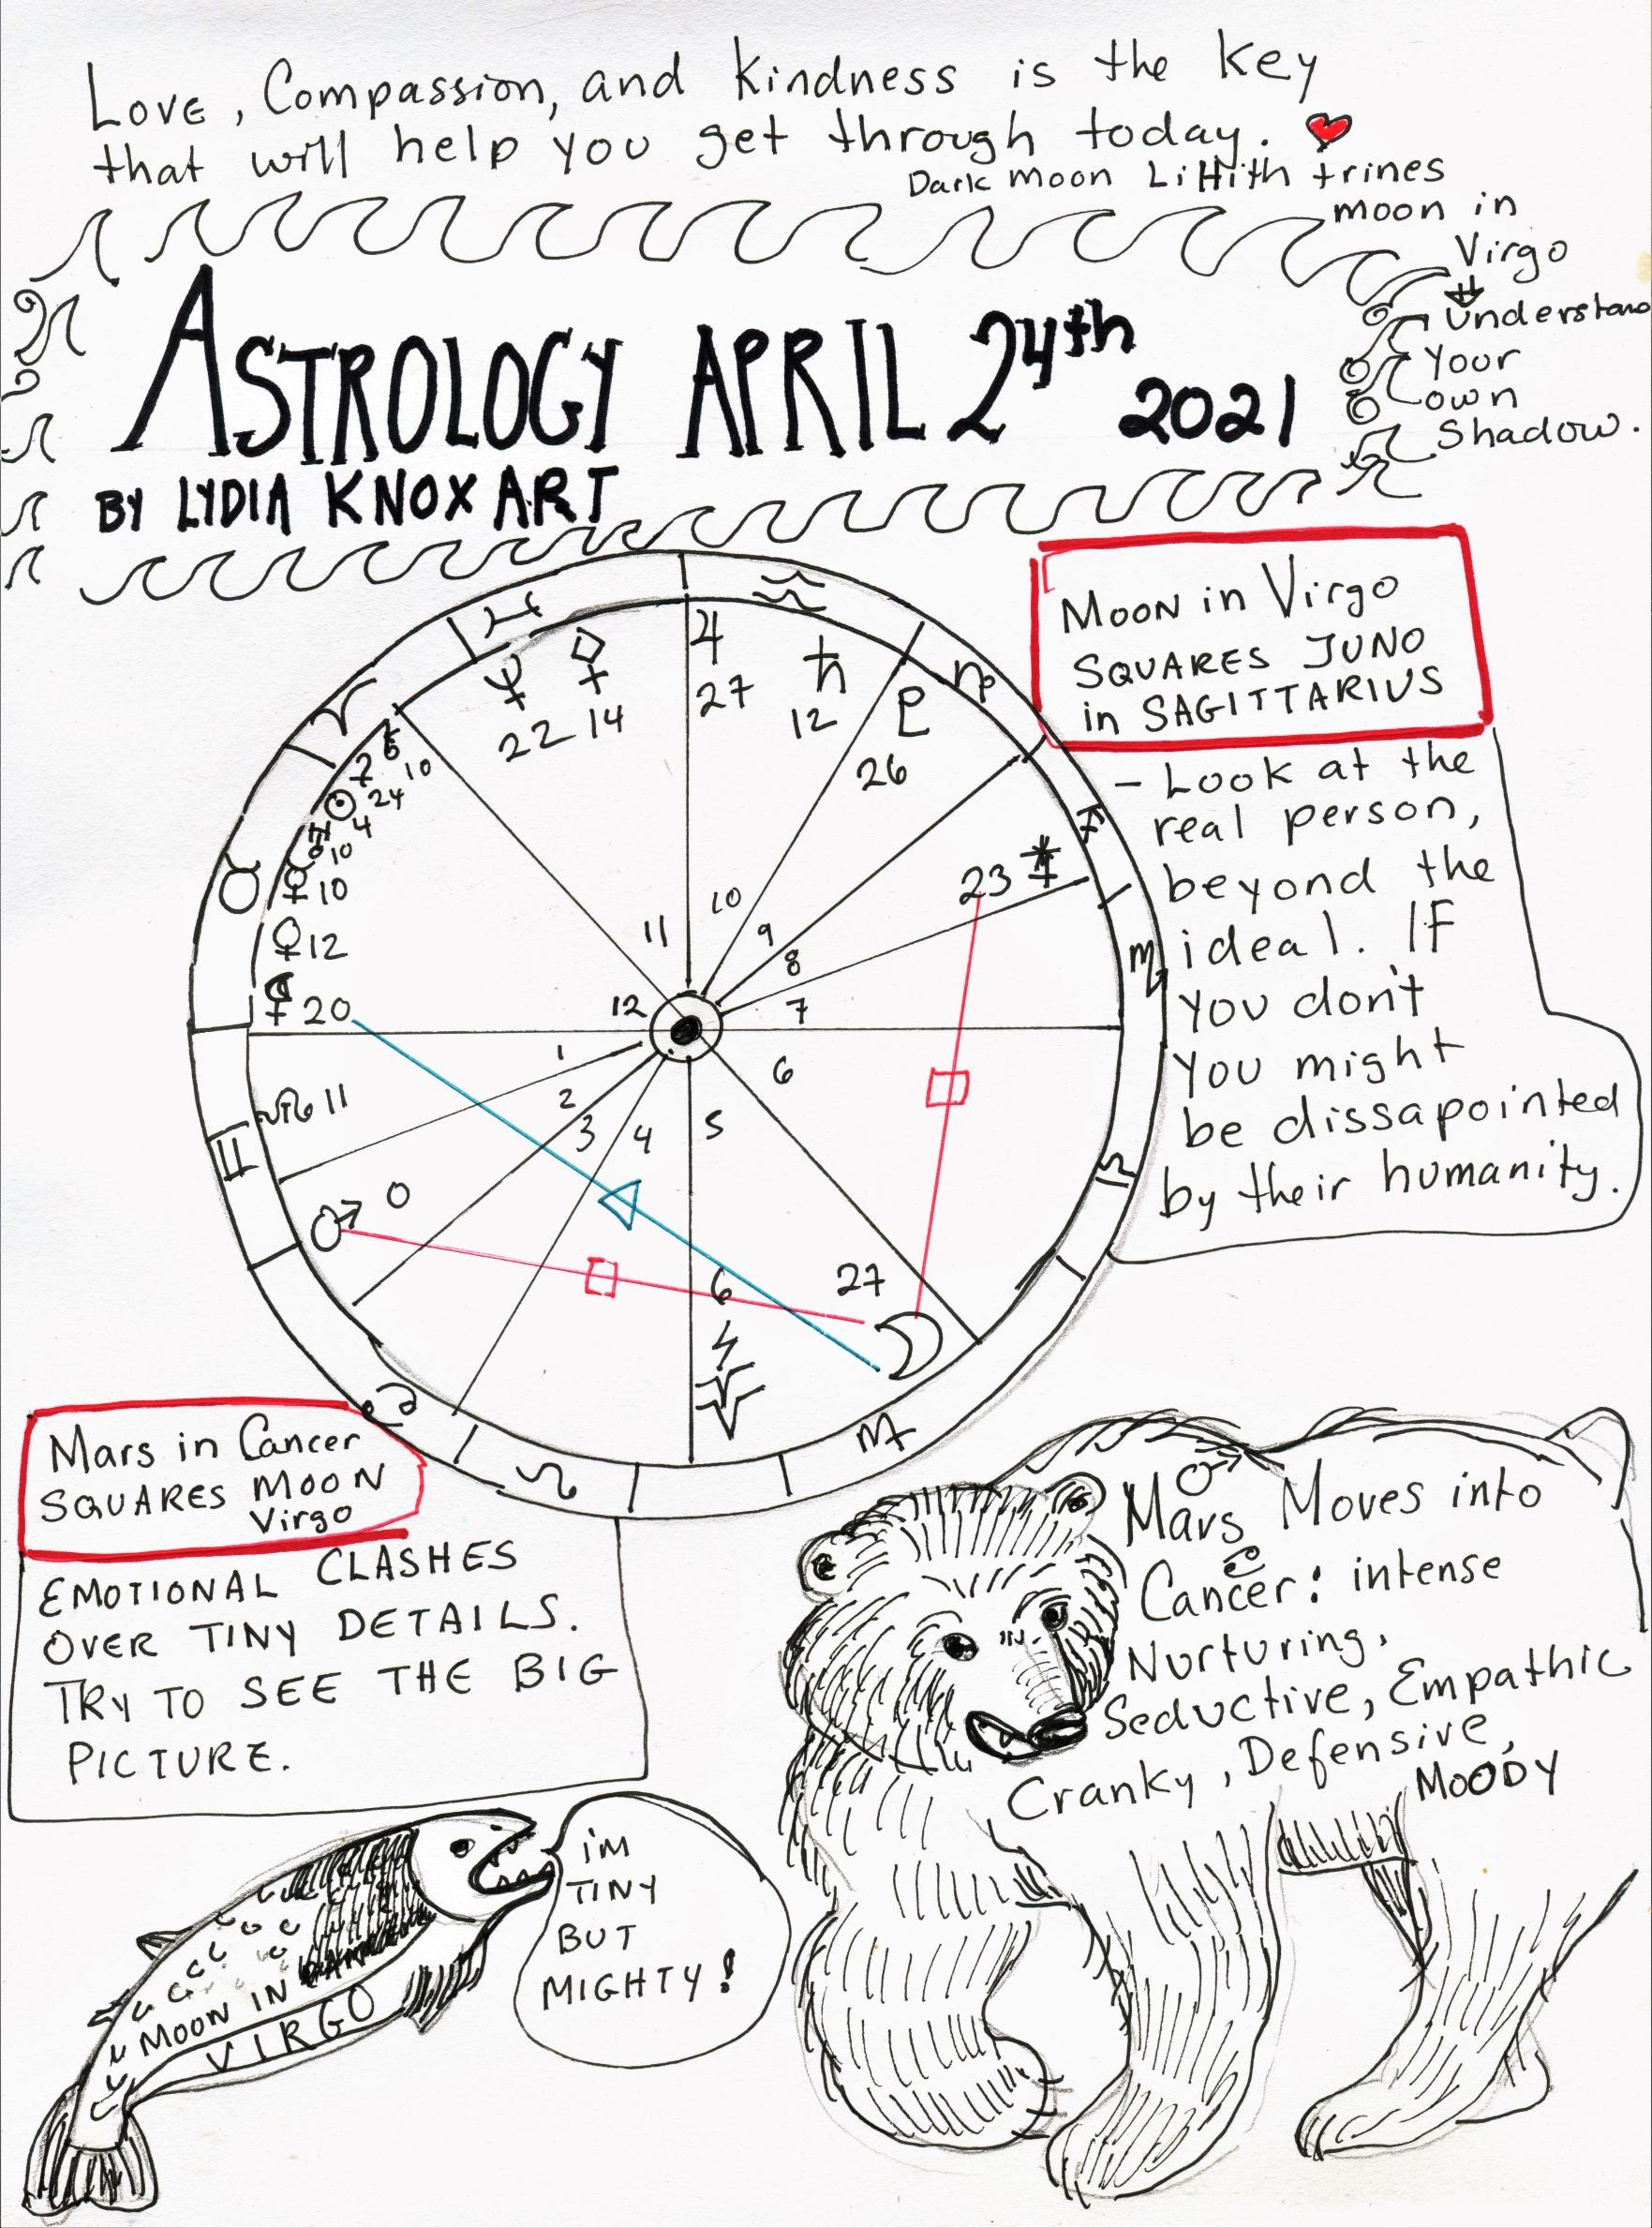 Love, Compassion, and kindness is the key
that will help you get through today. ❤
Dark moon Lillith trines
moon in
Virgo
Understand
Your
own
Shadow.
ASTROLOGY APRIL 24th 2021
BY LYDIA KNOX ART
MOON in Virgo
SQUARES JUNO
in SAGITTARIUS
- Look at the
real person,
beyond the
ideal. IF
you don't
you might
be dissapointed
by their humanity.
♓ ♒ ♑ ♐ ♏ ♎ ♍ ♌ ♋ ♊ ♉ ♈
♆ 22
14
♃ 27
♄ 12
♇ 26
23
10
☉ 24
4
10
☿ 10
♀ 12
⚸ 20
☊ 11
♂ 0
6
27 ☽
1
2
3
4
5
6
7
8
9
10
11
12
Mars in Cancer
SQUARES MOON
Virgo
EMOTIONAL CLASHES
OVER TINY DETAILS.
TRY TO SEE THE BIG
PICTURE.
♂
Mars Moves into
♋
Cancer: intense
Nurturing,
Seductive, Empathic
Cranky, Defensive,
MOODY
i'M
TINY
BUT
MIGHTY!
MOON IN
VIRGO